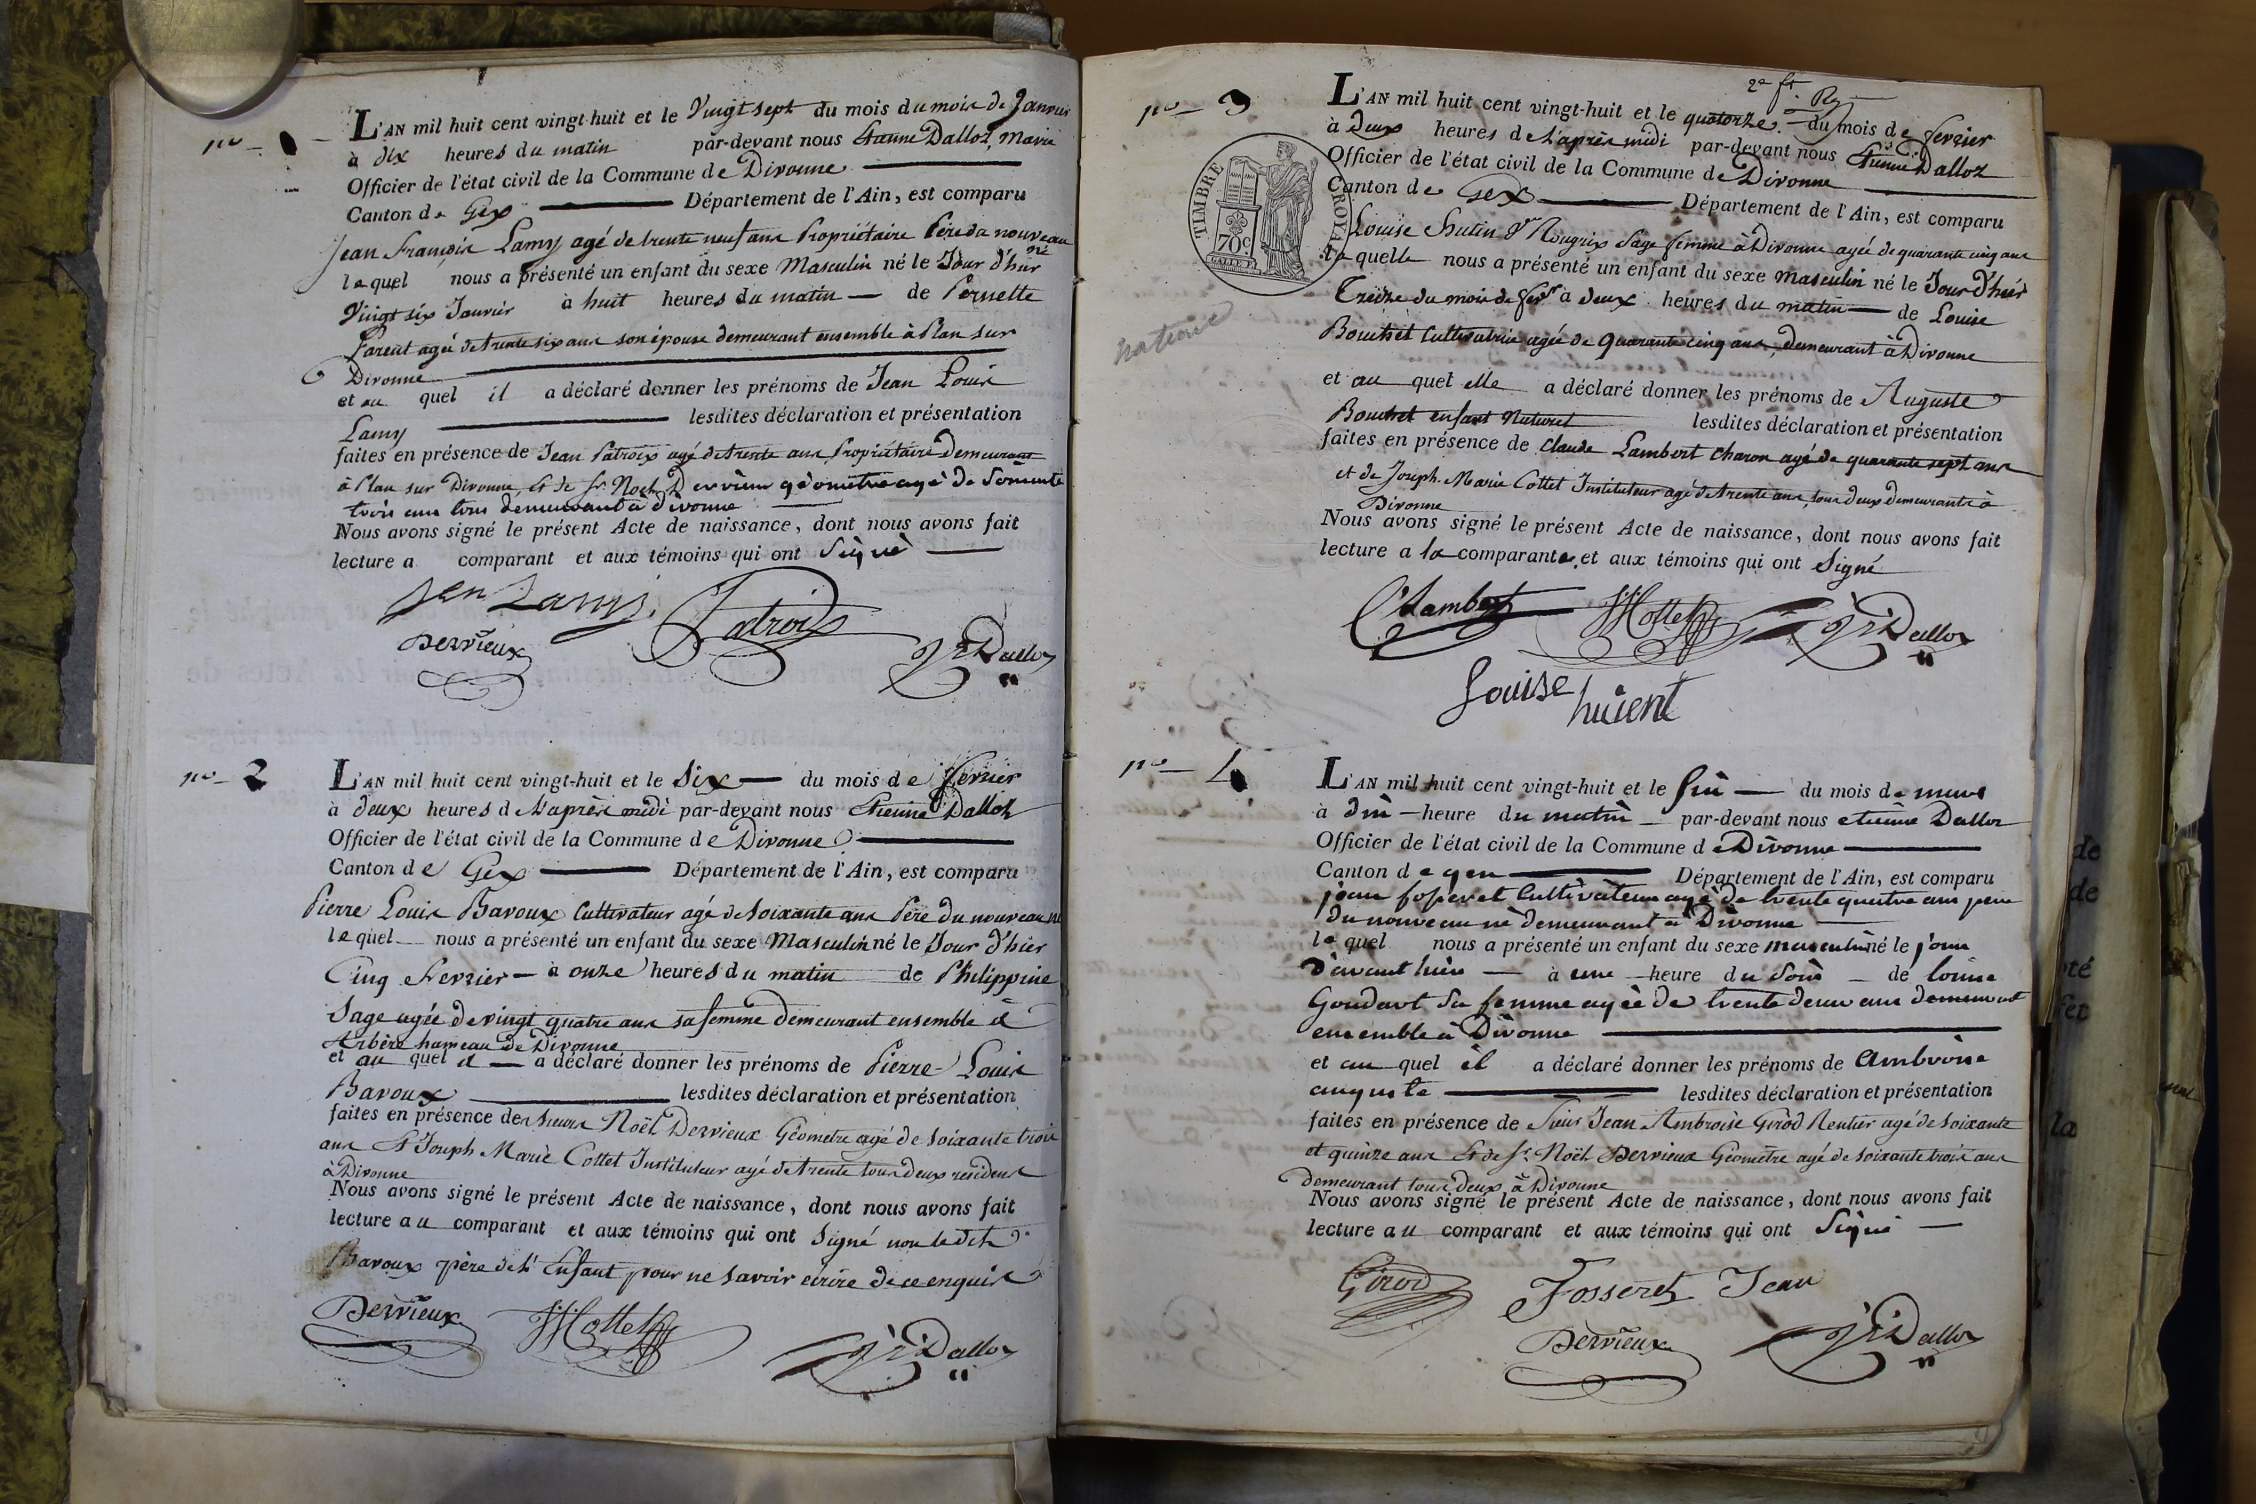 nº 1
L'AN mil huit cent vingt-huit et le Vingt sept du mois du mois de Janvier
à dix heures du matin par-devant nous Etienne Dalloz, Maire
Officier de l'état civil de la Commune de Divonne
Canton de Gex Département de l'Ain, est comparu
Jean François Lamy agé de trente neuf ans Propriétaire Père du nouveau né
lequel nous a présenté un enfant du sexe Masculin né le Jour d'hier
Vingt six Janvier à huit heures du matin de Pernette
Parent agée de trente six ans son épouse demeurant ensemble à Plan sur
Divonne
et au quel il a déclaré donner les prénoms de Jean Louis
Lamy lesdites déclaration et présentation
faites en présence de Jean Patroix agé de trente ans Propriétaire demeurant
à Plan sur Divonne, et de Sr. Noël Dervieux géometre agé de Soixante
trois ans tous demeurant à divonne
Nous avons signé le présent Acte de naissance, dont nous avons fait
lecture a comparant et aux témoins qui ont Signé
Jen Lamy Patroix
Dervieux Dalloz
nº 2
L'AN mil huit cent vingt-huit et le Six du mois de fevrier
à deux heures de l'après midi par-devant nous Etienne Dalloz
Officier de l'état civil de la Commune de Divonne
Canton de Gex Département de l'Ain, est comparu
Pierre Louis Bavoux Cultivateur agé de Soixante ans Père du nouveau né
lequel nous a présenté un enfant du sexe Masculin né le Jour d'hier
Cinq Fevrier à onze heures du matin de Philippine
Sage agée de vingt quatre ans sa femme demeurant ensemble à
Arbère hameau de Divonne
et au quel il a déclaré donner les prénoms de Pierre Louis
Bavoux lesdites déclaration et présentation
faites en présence de Sieurs Noël Dervieux Géometre agé de Soixante trois
ans Et Joseph Marie Cottet Instituteur agé de trente tous deux residens
à Divonne
Nous avons signé le présent Acte de naissance, dont nous avons fait
lecture au comparant et aux témoins qui ont Signé non le dit
Bavoux père de l'Enfant pour ne savoir ecrire de ce enquis
Dervieux Cottet Dalloz
nº 3
TIMBRE ROYAL
70c
naturel
L'AN mil huit cent vingt-huit et le quatorze du mois de fevrier
à Deux heures de l'après midi par-devant nous Etienne Dalloz
Officier de l'état civil de la Commune de Divonne
Canton de Gex Département de l'Ain, est comparu
Louise Hutin Sage femme à Divonne agée de quarante cinq ans
laquelle nous a présenté un enfant du sexe masculin né le Jour d'hier
Treize du mois de fevr à deux heures du matin de Louise
Bouchet Cultivatrice agée de Quarante cinq ans, demeurant à Divonne
et au quel elle a déclaré donner les prénoms de Auguste
Bouchet enfant Naturel lesdites déclaration et présentation
faites en présence de Claude Lambert charon agé de quarante sept ans
et de Joseph Marie Cottet Instituteur agé de trente ans, tous deux demeurants à
Divonne
Nous avons signé le présent Acte de naissance, dont nous avons fait
lecture a la comparante, et aux témoins qui ont Signé
Lambert Cottet Dalloz
Louise huient
nº 4
L'AN mil huit cent vingt-huit et le du mois de mars
à dix heure du matin par-devant nous etienne Dalloz
Officier de l'état civil de la Commune de Divonne
Canton de gex Département de l'Ain, est comparu
jean fosseret Cultivateur agé de trente quatre ans pere
du nouveau né demeurant à Divonne
lequel nous a présenté un enfant du sexe masculin né le jour
d'avant hier à une heure du Soir de louise
Goudart Sa femme agée de trente deux ans demeurant
ensemble à Divonne
et au quel il a déclaré donner les prénoms de Ambroise
auguste lesdites déclaration et présentation
faites en présence de Sieur Jean Ambroise Girod Rentier agé de soixante
et quinze ans Et de Sr. Noël Dervieux Géometre agé de soixante trois ans
demeurant tous deux à Divonne
Nous avons signé le présent Acte de naissance, dont nous avons fait
lecture au comparant et aux témoins qui ont Signé
Girod Fosseret Jean
Dervieux Dalloz